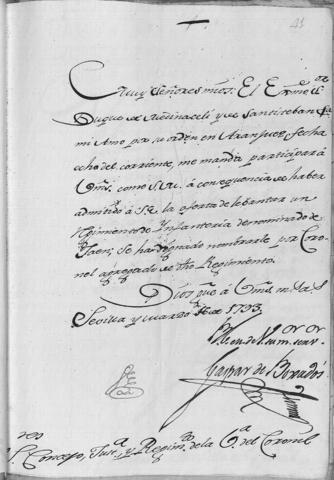 41
Muy Señores mios: El Exmo. Sor.
Duque de Medinaceli y de Santisteban &a.
mi Amo por su orden en Aranjuez fecha
ocho del corriente, me manda participar á
Vms. como S.M. á consequencia de haber
admitido á S.E. la oferta de lebantar un
Regimiento de Infanteria denominado de
Jaen; se ha dignado nombrarle por Coro-
nel agregado de dho Regimiento.
Dios gue. á Vms. m. a. s.
Sevilla y marzo de 1793.
Gaspar de
res
S. Concejo, Jusa. y Regimto. de la Va. del Coronil